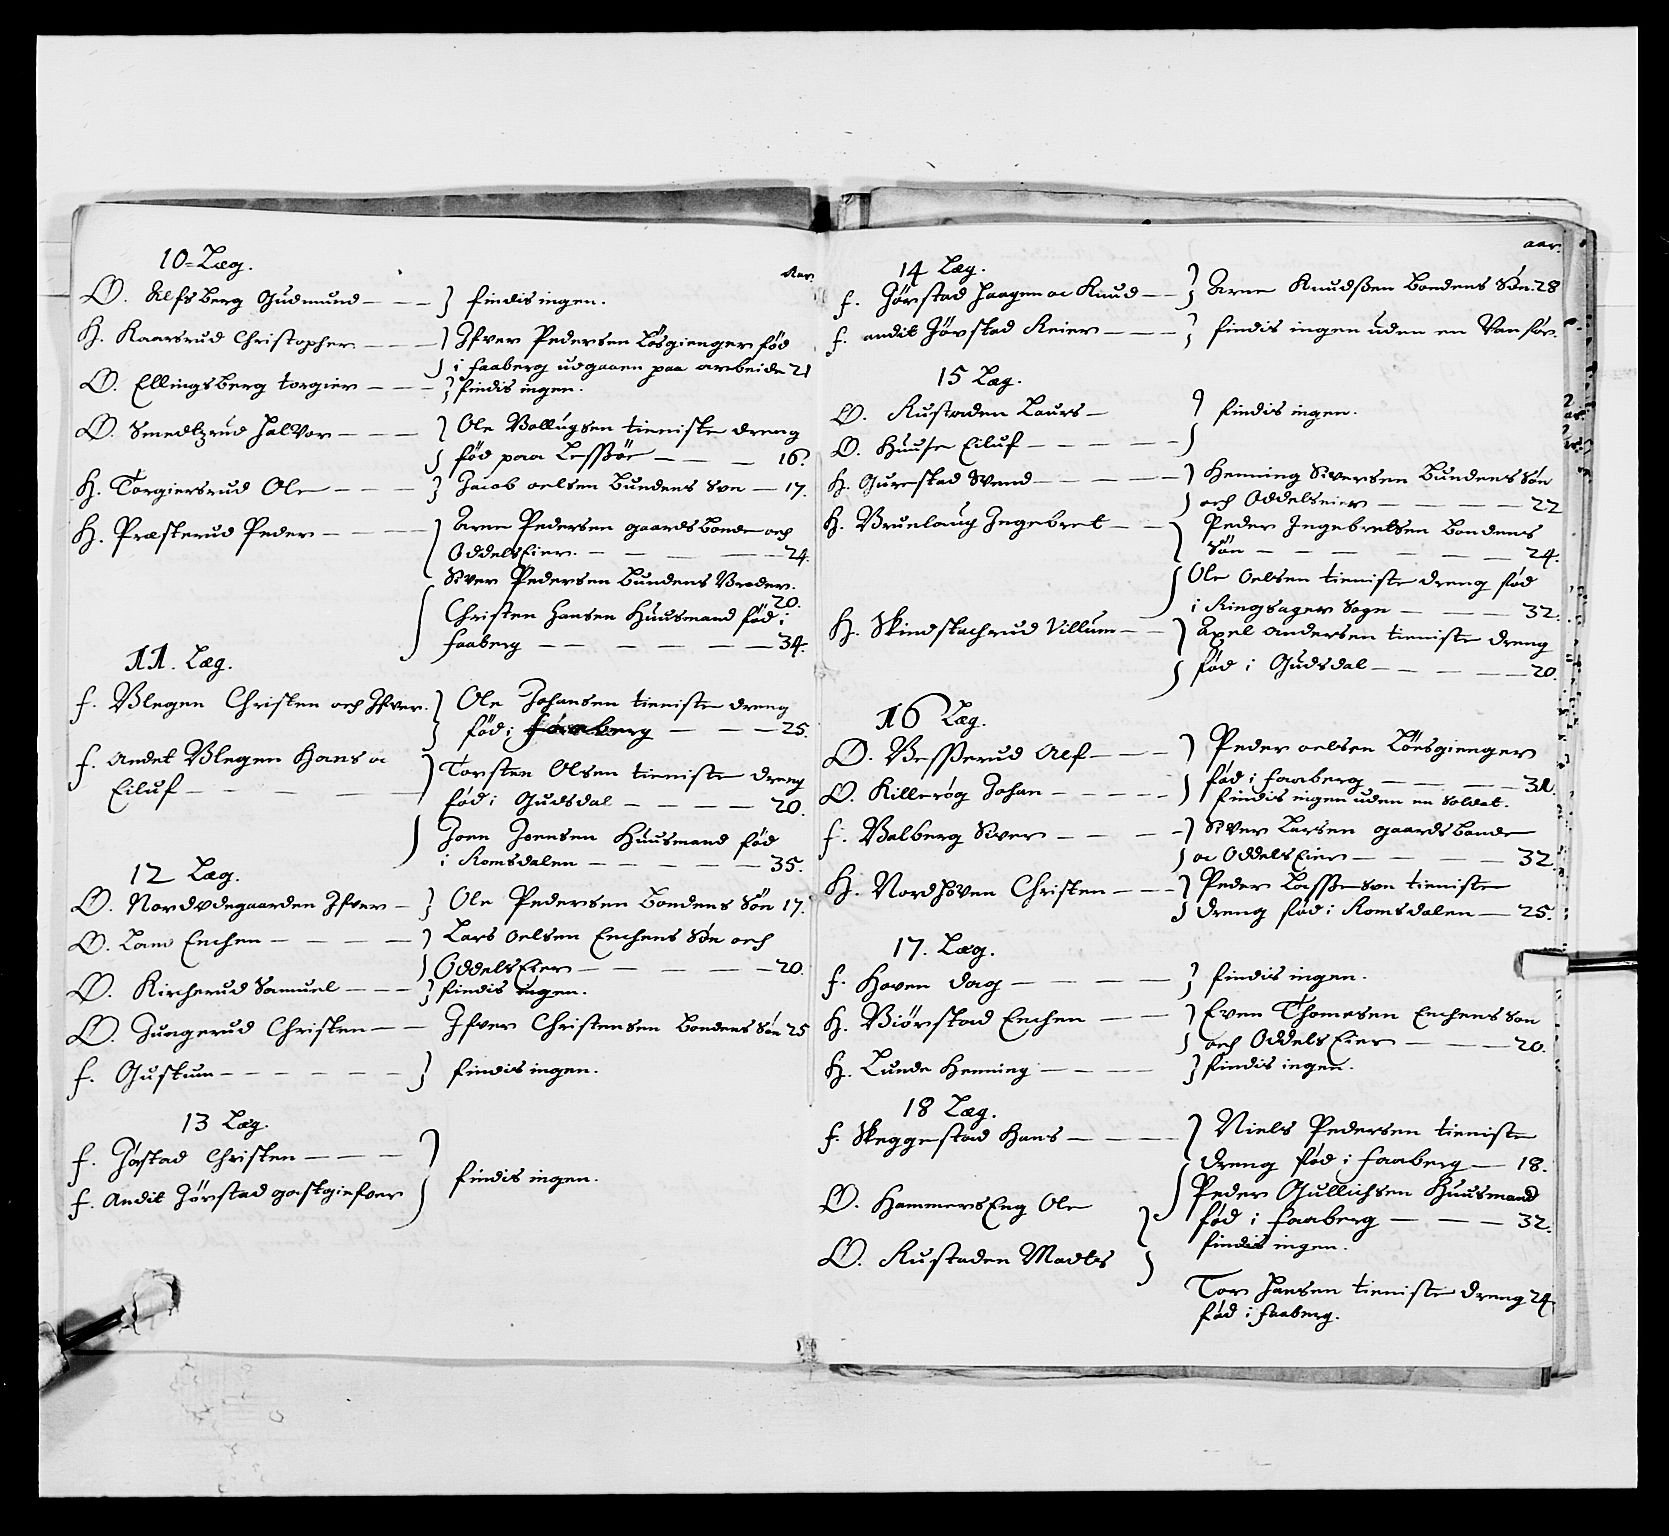 10 = Læg.
Aar.
Ø. Alfsberg Gudmund — — — } findis ingen.
H. Kaarsrud Christopher — — — } Ifver Pedersen Løsgienger fød
i faaberg udgaaen paa arbeide 21
Ø. Ellingsberg torgier — — — } findis ingen.
Ø. Smedtzrud Halvor — — — } Ole Bollugsen tieniste dreng
fød paa Lessøe — — — 16.
H. Torgiersrud Ole — — — } Jacob oelsen Bundens Søn — 17.
H. Præsterud Peder — — — } Arne Pedersen gaards bonde och
Oddels Eier. — — — — 24.
Siver Pedersen Bundens Broder.
20.
Christen Hansen Huusmand fød i
faaberg — — — — — 34.
11. Læg.
f. Blegen Christen och Ifver. } Ole Johansen tieniste dreng
fød i faaberg — — — 25.
f. andet Blegen Hans oc
Eiluf — — — — } Torsten Olsen tieniste dreng
fød i Gudsdal — — — — 20.
Joen Joensen Huusmand fød
i Romsdalen — — — — — 35.
12 Læg.
Ø. Nordødegaarden Ifver — } Ole Pedersen Bondens Søn 17.
Ø. Lam Enchen — — — — } Lars oelsen Enchens Søn och
Oddels Eier — — — — — 20.
Ø. Kircherud Samuel — — — } findis ingen.
Ø. Jungerud Christen — — Ifver Christensen Bondens Søn 25
f. Gustum — — — — — — } findis ingen.
13 Læg.
f. Jøstad Christen — — — }
f. Andet Jørstad gastgiefver } findis ingen.
aar.
14 Læg.
f. Jørstad Haagen oc Knud — — } Arne Knudsøen Bondens Søn. 28
f. andet Jørstad Reier — — — } findis ingen uden en Vanfør.
15 Læg.
Ø. Rustaden Laurs — } findis ingen.
Ø. Huuse Eiluf — — — — — }
H. Gurestad Svend — — — — } Henning Siversen Bundens Søn
och Oddelseier — — — — — 22
H. Bruelaug Ingebret — — } Peder Ingebretsen Bondens
Søn — — — — — — — 24.
Ole Oelsen tieniste dreng fød
i Ringsager Sogn — — — — 32.
H. Skindstachrud Villum — — } Axel andersen tieniste dreng
fød i Gudsdal — — — — — 20.
16 Læg.
Ø. Besserud Alf — — — } Peder oelsen Løesgienger
fød i faaberg — — — — 31.
Ø. Killerøg Johan — — — — — } findis ingen uden en soldat.
f. Balberg Siver — — — — } Siver Larsen gaards bonde
oc Oddels Eier — — — — 32
H. Nordhoven Christen — — — } Peder Lassesøn tieniste
dreng fød i Romsdalen — 25.
17. Læg.
f. Hoven Dag — — — — — } findis ingen.
H. Biørstad Enchen — — — } Even Thomesen Enchens Søn
och Oddels Eier — — — — 20.
H. Lunde Henning — — — — } findis ingen.
18 Læg.
f. Skeggestad Hans — — — — } Niels Pedersen tieniste
dreng fød i faaberg — 18.
Peder Gullichsen Huusmand
Ø. Hammers Eng Ole
fød i faaberg — — — — 32.
findis ingen.
Ø. Rustaden Madtz }
Tor Hansen tieniste dreng 24
fød i faaberg.